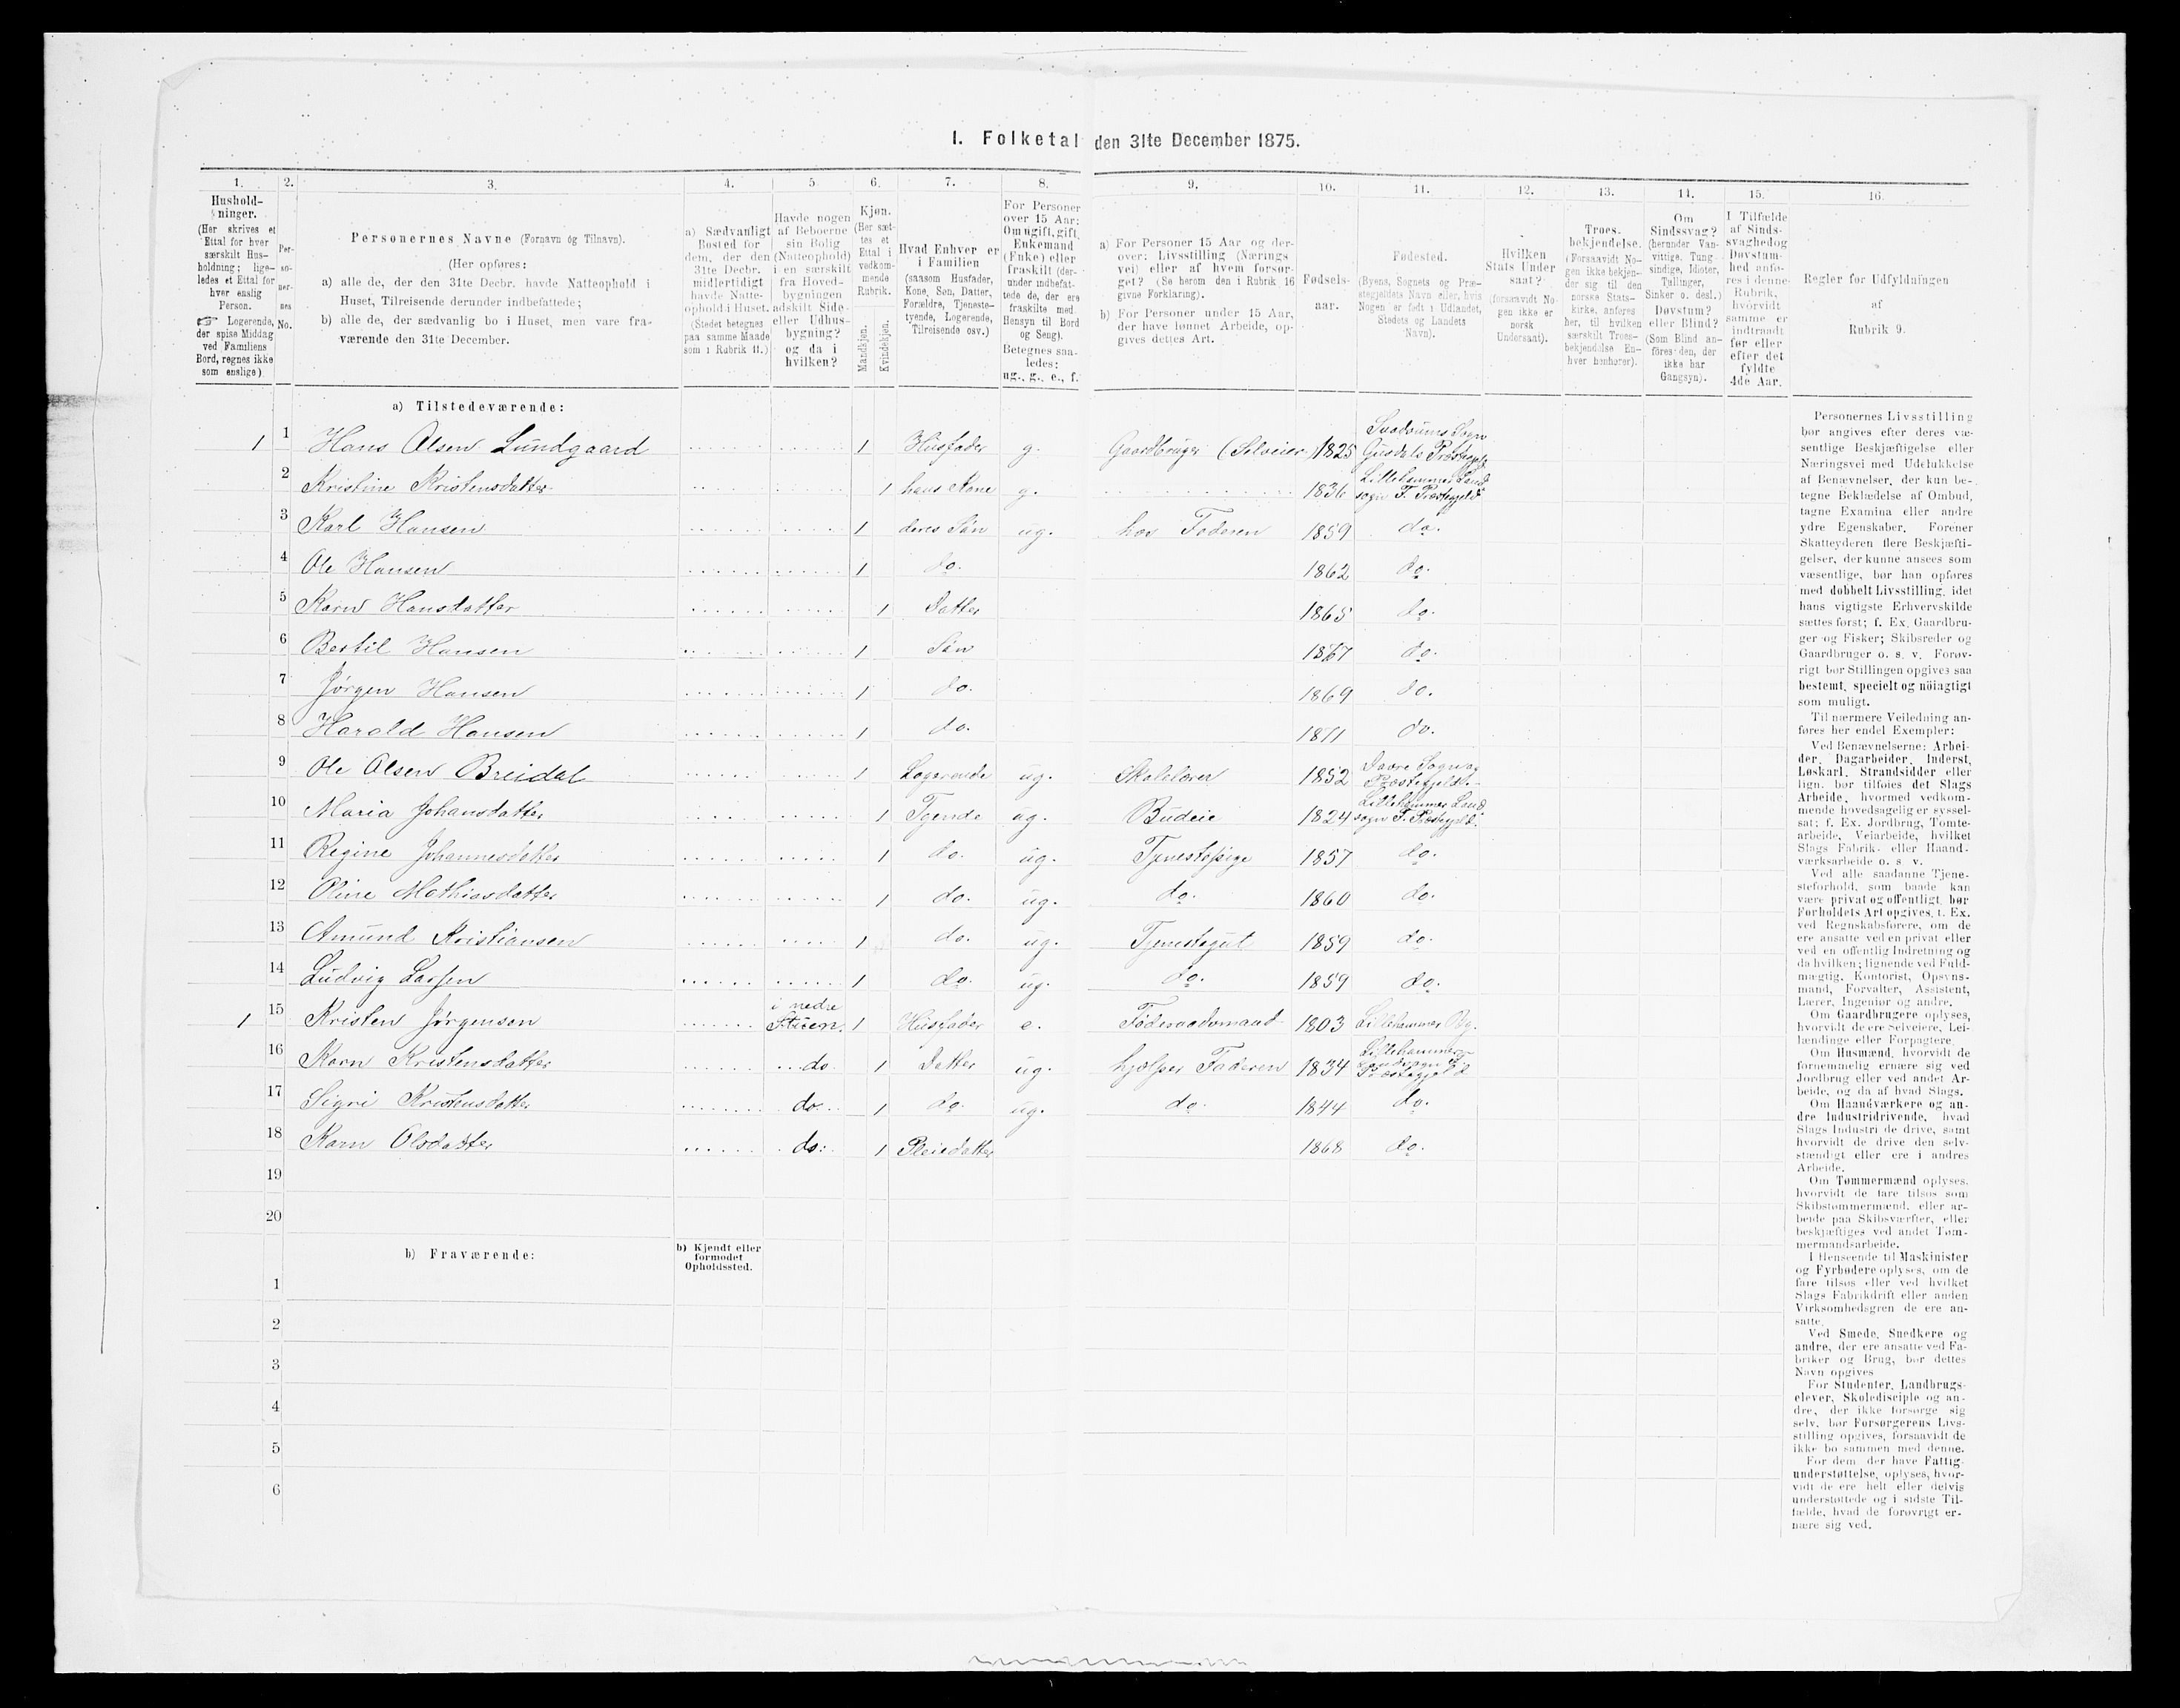 I. Folketal den 31te December 1875.
1. 2. 3. 4. 5. 6. 7. 8. 9. 10. 11. 12. 13. 14. 15. 16.
Husholdninger.
(Her skrives et
Ettal for hver
særskilt Hus-
holdning; lige-
ledes et Ettal for
hver enslig
Person.
☞ Logerende,
der spise Middag
ved Familiens
Bord, regnes ikke
som enslige)
Per-
so-
ner-
nes
No.
Personernes Navne (Fornavn og Tilnavn).
(Her opføres:
a) alle de, der den 31te Decbr. havde Natteophold i
Huset, Tilreisende derunder indbefattede;
b) alle de, der sædvanlig bo i Huset, men vare fra-
værende den 31te December.
a) Sædvanligt
Bosted for
dem, der den
31te Decbr.
midlertidigt
havde Natte-
ophold i Huset.
(Stedet betegnes
paa samme Maade
som i Rubrik 11.)
Havde nogen
af Beboerne
sin Bolig
(Natteophold)
i en særskilt
fra Hoved-
bygningen
adskilt Side-
eller Udhus-
bygning?
og da i
hvilken?
Kjøn.
(Her sæt-
tes et
Ettal i
vedkom-
mende
Rubrik.
Mandkjøn.
Kvindekjøn.
Hvad Enhver er
i Familien
(saasom Husfader,
Kone, Søn, Datter,
Forældre, Tjeneste-
tyende, Logerende,
Tilreisende osv.)
For Personer
over 15 Aar:
Om ugift, gift,
Enkemand
(Enke) eller
fraskilt (der-
under indbefat-
tede de, der ere
fraskilte med
Hensyn til Bord
og Seng).
Betegnes saa-
ledes:
ug., g., e., f.
a) For Personer 15 Aar og der-
over: Livsstilling (Nærings
vei) eller af hvem forsør-
get? (Se herom den i Rubrik 16
givne Forklaring).
b) For Personer under 15 Aar,
der have lønnet Arbeide, op-
gives dettes Art.
Fødsels-
aar.
Fødested.
(Byens, Sognets og Præ-
stegjeldets Navn eller, hvis
Nogen er født i Udlandet,
Stedets og Landets
Navn).
Hvilken
Stats Under
saat?
(forsaavidt No-
gen ikke er
norsk
Undersaat).
Troes-
bekjendelse.
(Forsaavidt No-
gen ikke bekjen-
der sig til den
norske Stats-
kirke, anføres
her, til hvilken
særskilt Troes-
bekjendelse En-
hver henhører).
Om
Sindssvag?
(herunder Van-
vittige, Tung-
sindige, Idioter,
Tullinger,
Sinker o. desl.)
Døvstum?
eller Blind?
(Som Blind an-
føres den, der
ikke har
Gangsyn).
I Tilfælde
af Sinds-
svaghed og
Døvstum-
hed anfø-
res i denne
Rubrik,
hvorvidt
samme er
indtraadt
før eller
efter det
fyldte
4de Aar.
Regler for Udfyldningen
af
Rubrik 9.
a) Tilstedeværende:
1 1 Hans Olsen Lundgaard 1 Husfader g. Gaardbruger (Selveier) 1825 Svadsums Sogn Gusdals Præstegjeld
2 Kristine Kristensdatter 1 hans Kone g. 1836 Lillehammer Landsogn F. Præstegjeld
3 Karl Hansen 1 deres Søn ug. hos Faderen 1859 do.
4 Ole Hansen 1 do. 1862 do.
5 Karn Hansdatter 1 Datter 1865 do.
6 Bertil Hansen 1 Søn 1867 do.
7 Jørgen Hansen 1 do. 1869 do.
8 Harald Hansen 1 do. 1871 do.
9 Ole Olsen Breidal 1 Logerende ug. Skolelærer 1852 Dovre Sogn og Præstegjeld
10 Maria Johansdatter 1 Tyende ug. Budeie 1824 Lillehammer Landsogn F. Præstegjeld.
11 Regine Johannesdatter 1 do. ug. Tjenestepige 1857 do.
12 Oline Mathiasdatter 1 do. ug. do. 1860 do.
13 Amund Kristiansen 1 do. ug. Tjenestegut 1859 do.
14 Ludvig Larsen 1 do. ug. do. 1859 do.
1 15 Kristen Jørgensen i nedre Stuen. 1 Husfader e. Føderaadsmand 1803 Lillehammer By.
16 Karn Kristensdatter do 1 Datter ug. hjelper Faderen 1834 Lillehammer Landsogn F. Præstegjeld
17 Sigri Kristensdatter do. 1 do. ug. do. 1844 do.
18 Karn Olsdatter do: 1 Pleiedatter 1868 do.
19
20
b) Fraværende:
b) Kjendt eller
formodet
Opholdssted.
1
2
3
4
5
6
Personernes Livsstilling
bør angives efter deres væ-
sentlige Beskjæftigelse eller
Næringsvei med Udelukkelse
af Benævnelser, der kun be-
tegne Beklædelse af Ombud,
tagne Examina eller andre
ydre Egenskaber. Forener
Skatteyderen flere Beskjæfti-
gelser, der kunne ansees som
væsentlige, bør han opføres
med dobbelt Livsstilling, idet
hans vigtigste Erhvervskilde
sættes først; f. Ex. Gaardbru-
ger og Fisker; Skibsreder og
Gaardbruger o. s. v. Forøv-
rigt bør Stillingen opgives saa
bestemt, specielt og nöiagtigt
som muligt.
Til nærmere Veiledning an-
føres her endel Exempler:
Ved Benævnelserne: Arbei-
der, Dagarbeider, Inderst,
Løskarl, Strandsidder eller
lign. bør tilføies det Slags
Arbeide, hvormed vedkom-
mende hovedsagelig er syssel-
sat; f. Ex. Jordbrug, Tomte-
arbeide, Veiarbeide, hvilket
Slags Fabrik- eller Haand-
værksarbeide o. s v.
Ved alle saadanne Tjene-
steforhold, som baade kan
være privat og offentligt, bør
Forholdets Art opgives, t. Ex.
ved Regnskabsførere, om de
ere ansatte ved en privat eller
ved en offentlig Indretning og
da hvilken; lignende ved Fuld-
mægtig, Kontorist, Opsyns-
mand, Forvalter, Assistent,
Lærer, Ingeniør og andre.
Om Gaardbrugere oplyses,
hvorvidt de ere Selveiere, Lei-
lændinge eller Forpagtere.
Om Husmænd, hvorvidt de
fornemmelig ernære sig ved
Jordbrug eller ved andet Ar-
beide, og da af hvad Slags.
Om Haandværkere og an-
dre Industridrivende, hvad
Slags Industri de drive, samt
hvorvidt de drive den selv-
stændigt eller ere i andres
Arbeide.
Om Tømmermænd oplyses,
hvorvidt de fare tilsøs som
Skibstømmermænd, eller ar-
beide paa Skibsværfter, eller
beskjæftiges ved andet Tøm-
mermandsarbeide.
I Henseende til Maskinister
og Fyrbødere oplyses, om de
fare tilsøs eller ved hvilket
Slags Fabrikdrift eller anden
Virksomhedsgren de ere an-
satte.
Ved Smede, Snedkere og
andre, der ere ansatte ved Fa-
briker og Brug, bør dettes
Navn opgives
For Studenter, Landbrugs-
elever, Skoledisciple og an-
dre, der ikke forsørge sig
selv, bør Forsørgerens Livs-
stilling opgives, forsaavidt de
ikke bo sammen med denne.
For dem, der have Fattig-
understøttelse, oplyses, hvor-
vidt de ere helt eller delvis
understøttede og i sidste Til-
fælde, hvad de forøvrigt er-
nære sig ved.